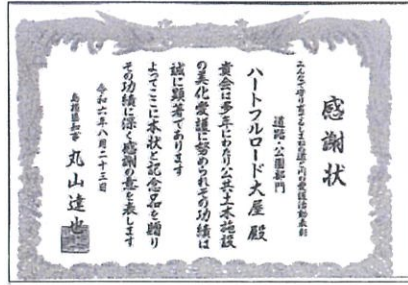 感謝状
みんなで守り育てるしまねの道と川の愛護活動表彰
道路・公園部門
ハートフルロード大屋 殿
貴会は多年にわたり公共土木施設
の美化愛護に努められその功績は
誠に顕著であります
よってここに本状と記念品を贈り
その功績に深く感謝の意を表します
令和六年八月二十三日
島根県知事 丸山達也